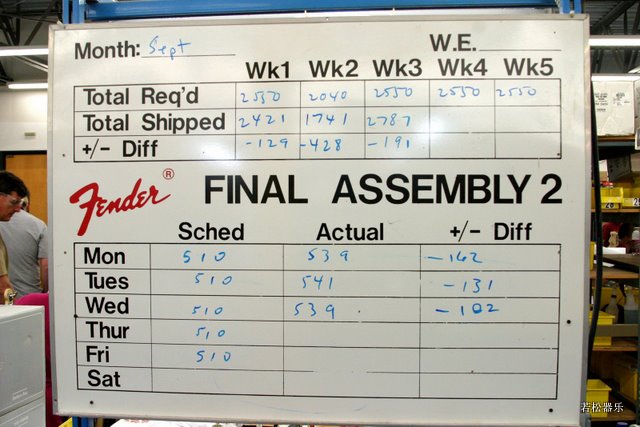 Month: Sept W.E.
Wk1 Wk2 Wk3 Wk4 Wk5
Total Req'd 2550 2040 2550 2550 2550
Total Shipped 2421 1741 2787
+/- Diff -129 -428 -191
Fender® FINAL ASSEMBLY 2
Sched Actual +/- Diff
Mon 510 539 -162
Tues 510 541 -131
Wed 510 539 -102
Thur 510
Fri 510
Sat
若松器乐